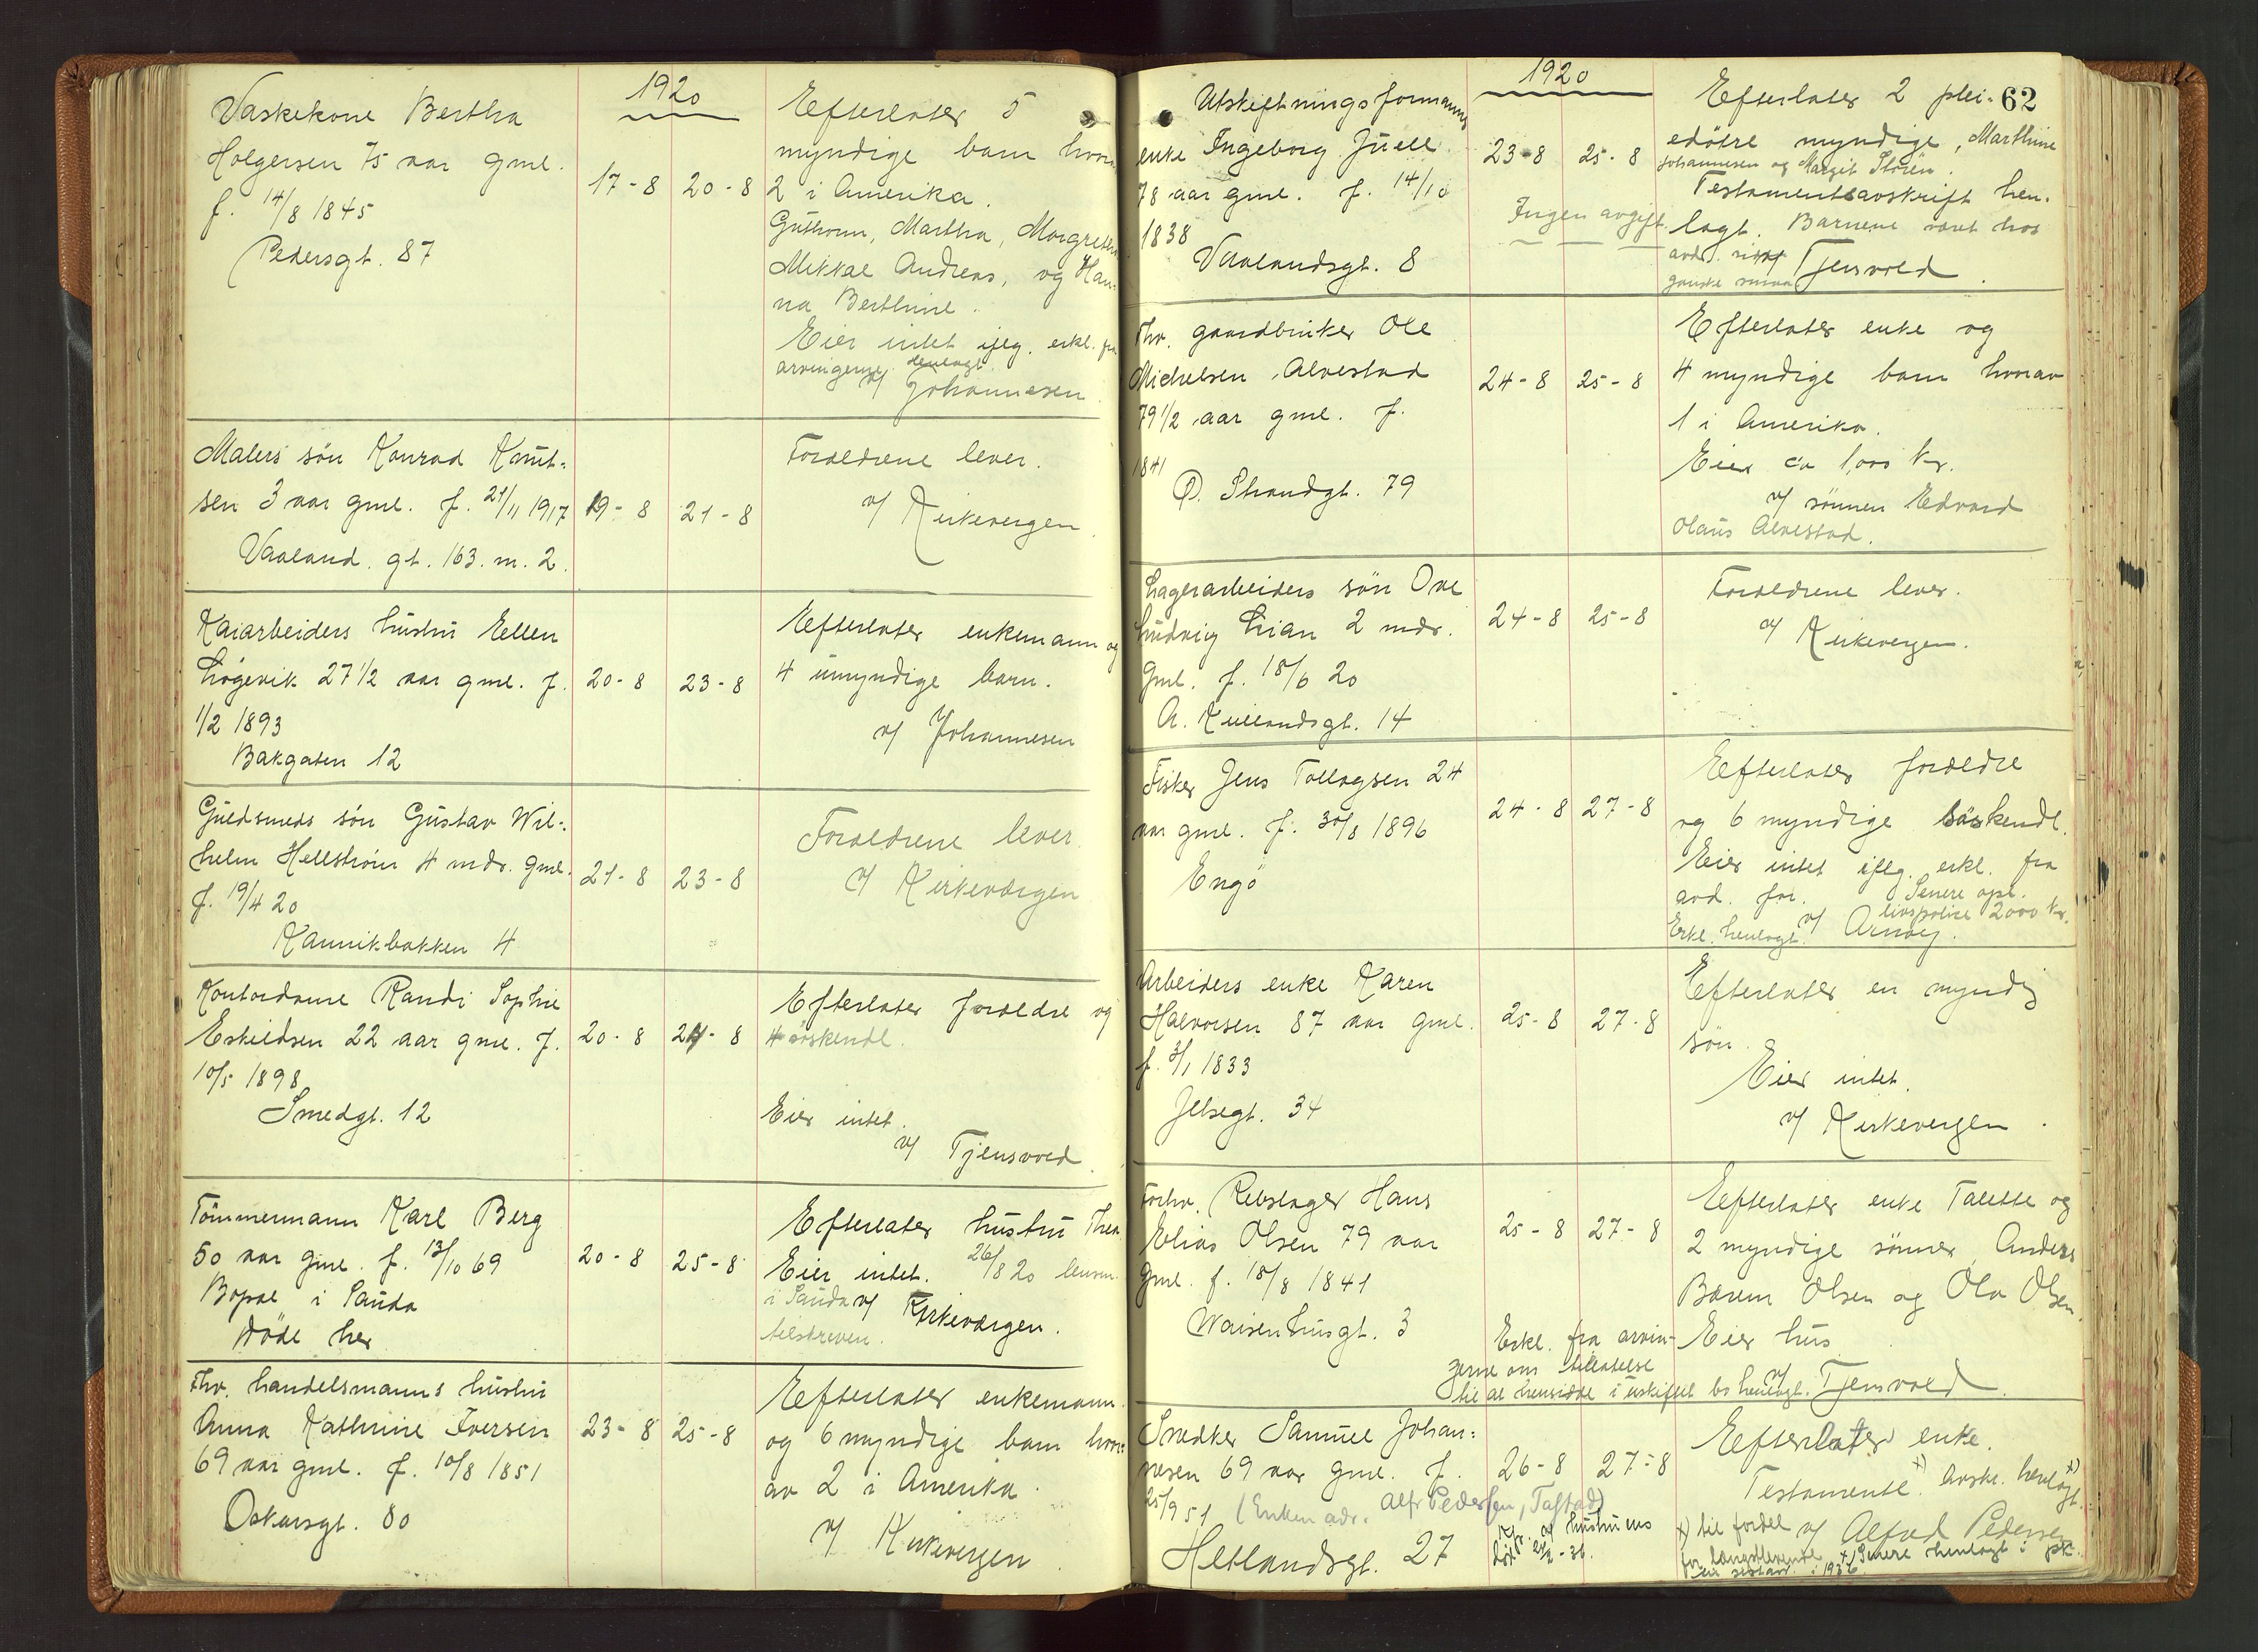 1920
Vaskekone Bertha
Holgersen 75 aar gml.
f. 14/8 1845
Pedersgt. 87
17-8 20-8
Efterlater 5
myndige barn hvorav
2 i Amerika.
Guthorm, Martha, Margrethe
Mikkal Andreas, og Han-
na Berthine.
Eier intet ifølg. erkl. fra
arvingerne henlagt
v/ Johannesen
Malers sön Konrad Knut-
sen 3 aar gml. f. 21/11 1917
Vaaland. gt. 163. m. 2.
19-8 21-8
Forældrene lever.
v/ Kirkevergen.
Kaiarbeiders hustru Ellen
Løgevik 27 1/2 aar gml. f.
1/2 1893
Bakgaten 12
20-8 23-8
Efterlater enkemann og
4 umyndige barn.
v/ Johannesen
Guldsmeds sön Gustav Wil-
helm Hellstrøm 4 mdr. gml.
f. 19/4 20
Kannikbakken 4
21-8 23-8
Forældrene lever.
v/ Kirkeværgen
Kontordame Randi Sophie
Eskildsen 22 aar gml. f.
10/5 1898
Smedgt. 12
20-8 24-8
Efterlater forældre og
4 söskende.
Eier intet.
v/ Tjensvold.
Tömmermann Karl Berg
50 aar gml. f. 13/10 69
Bopæl i Sauda
döde her
20-8 25-8
Efterlater hustru Thea
Eier intet. 26/8 20 lensm.
i Sauda v/ Kirkeværgen.
tilskreven.
Fhv. handelsmanns hustru
Anna Kathrine Iversen
69 aar gml. f. 10/8 1851
Oskarsgt. 80
23-8 25-8
Efterlater enkemann
og 6 myndige barn hvor-
av 2 i Amerika.
v/ Kirkevergen.
1920
62
Utskiftningsformanns
enke Ingeborg Juell
78 aar gml. f. 14/10
1838
Vaalandsgt. 8
23-8 25-8
Ingen avgift.
Efterlater 2 plei-
edötre myndige, Marthine
Johannesen og Margit Støren.
Testamentsavskrift hen-
lagt. Barnene været hos
avd. siden
ganske smaa Tjensvold.
Fhv. gaardbruker Ole
Michelsen Alvestad
79 1/2 aar gml. f.
1841
Ø. Strandgt. 79
24-8 25-8
Efterlater enke og
4 myndige barn hvorav
1 i Amerika.
Eier ca 1,000 kr.
v/ sönnen Edvard
Olaus Alvestad.
Lagerarbeiders sön Ove
Ludvig Lian 2 mdr.
gml. f. 18/6 20
A. Kiellandsgt. 14
24-8 25-8
Forældrene lever.
v/ Kirkevergen.
Fisker Jens Tollagsen 24
aar gml. f. 30/8 1896
Engö
24-8 27-8
Efterlater forældre
og 6 myndige söskende.
Eier intet iflg. erkl. fra
avd. far. Senere opl.
livspolise 2000 kr.
Erkl. henlagt. v/ Arnøy.
Arbeiders enke Karen
Halvorsen 87 aar gml.
f. 3/1 1833
Jelsegt. 34
25-8 27-8
Efterlater en myndig
sön.
Eier intet.
v/ Kirkevergen.
Forhv. Rebslager Hans
Elias Olsen 79 aar
gml. f. 18/8 1841
Waisenhusgt. 3
25-8 27-8
Efterlater enke Talette og
2 myndige sönner Anders
Barem Olsen og Ola Olsen.
Eier hus.
Erkl. fra arvin-
gerne om tillatelse
til at hensidde i uskiftet bo henlagt. v/ Tjensvold.
Snedker Samuel Johan-
nesen 69 aar gml. f.
25/9 51 (Enken adr. Alfr. Pedersen, Tastad)
Hetlandsgt. 27
26-8 27-8
v/ hustruens
død 24/2-36.
Efterlater enke.
Testamente x) Avskr. henlagt x).
x) til fordel v/ Alfred Pedersen
for længstlevende x) Senere henlagt i pk.
1936